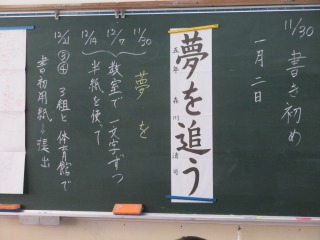 11/30
書き初め
一月二日
夢を追う
五年 森川清司
夢を
11/30
12/7
12/14
教室で 一文字ずつ
半紙を使って
12/21 ③④ 3組と体育館で
書初用紙→提出